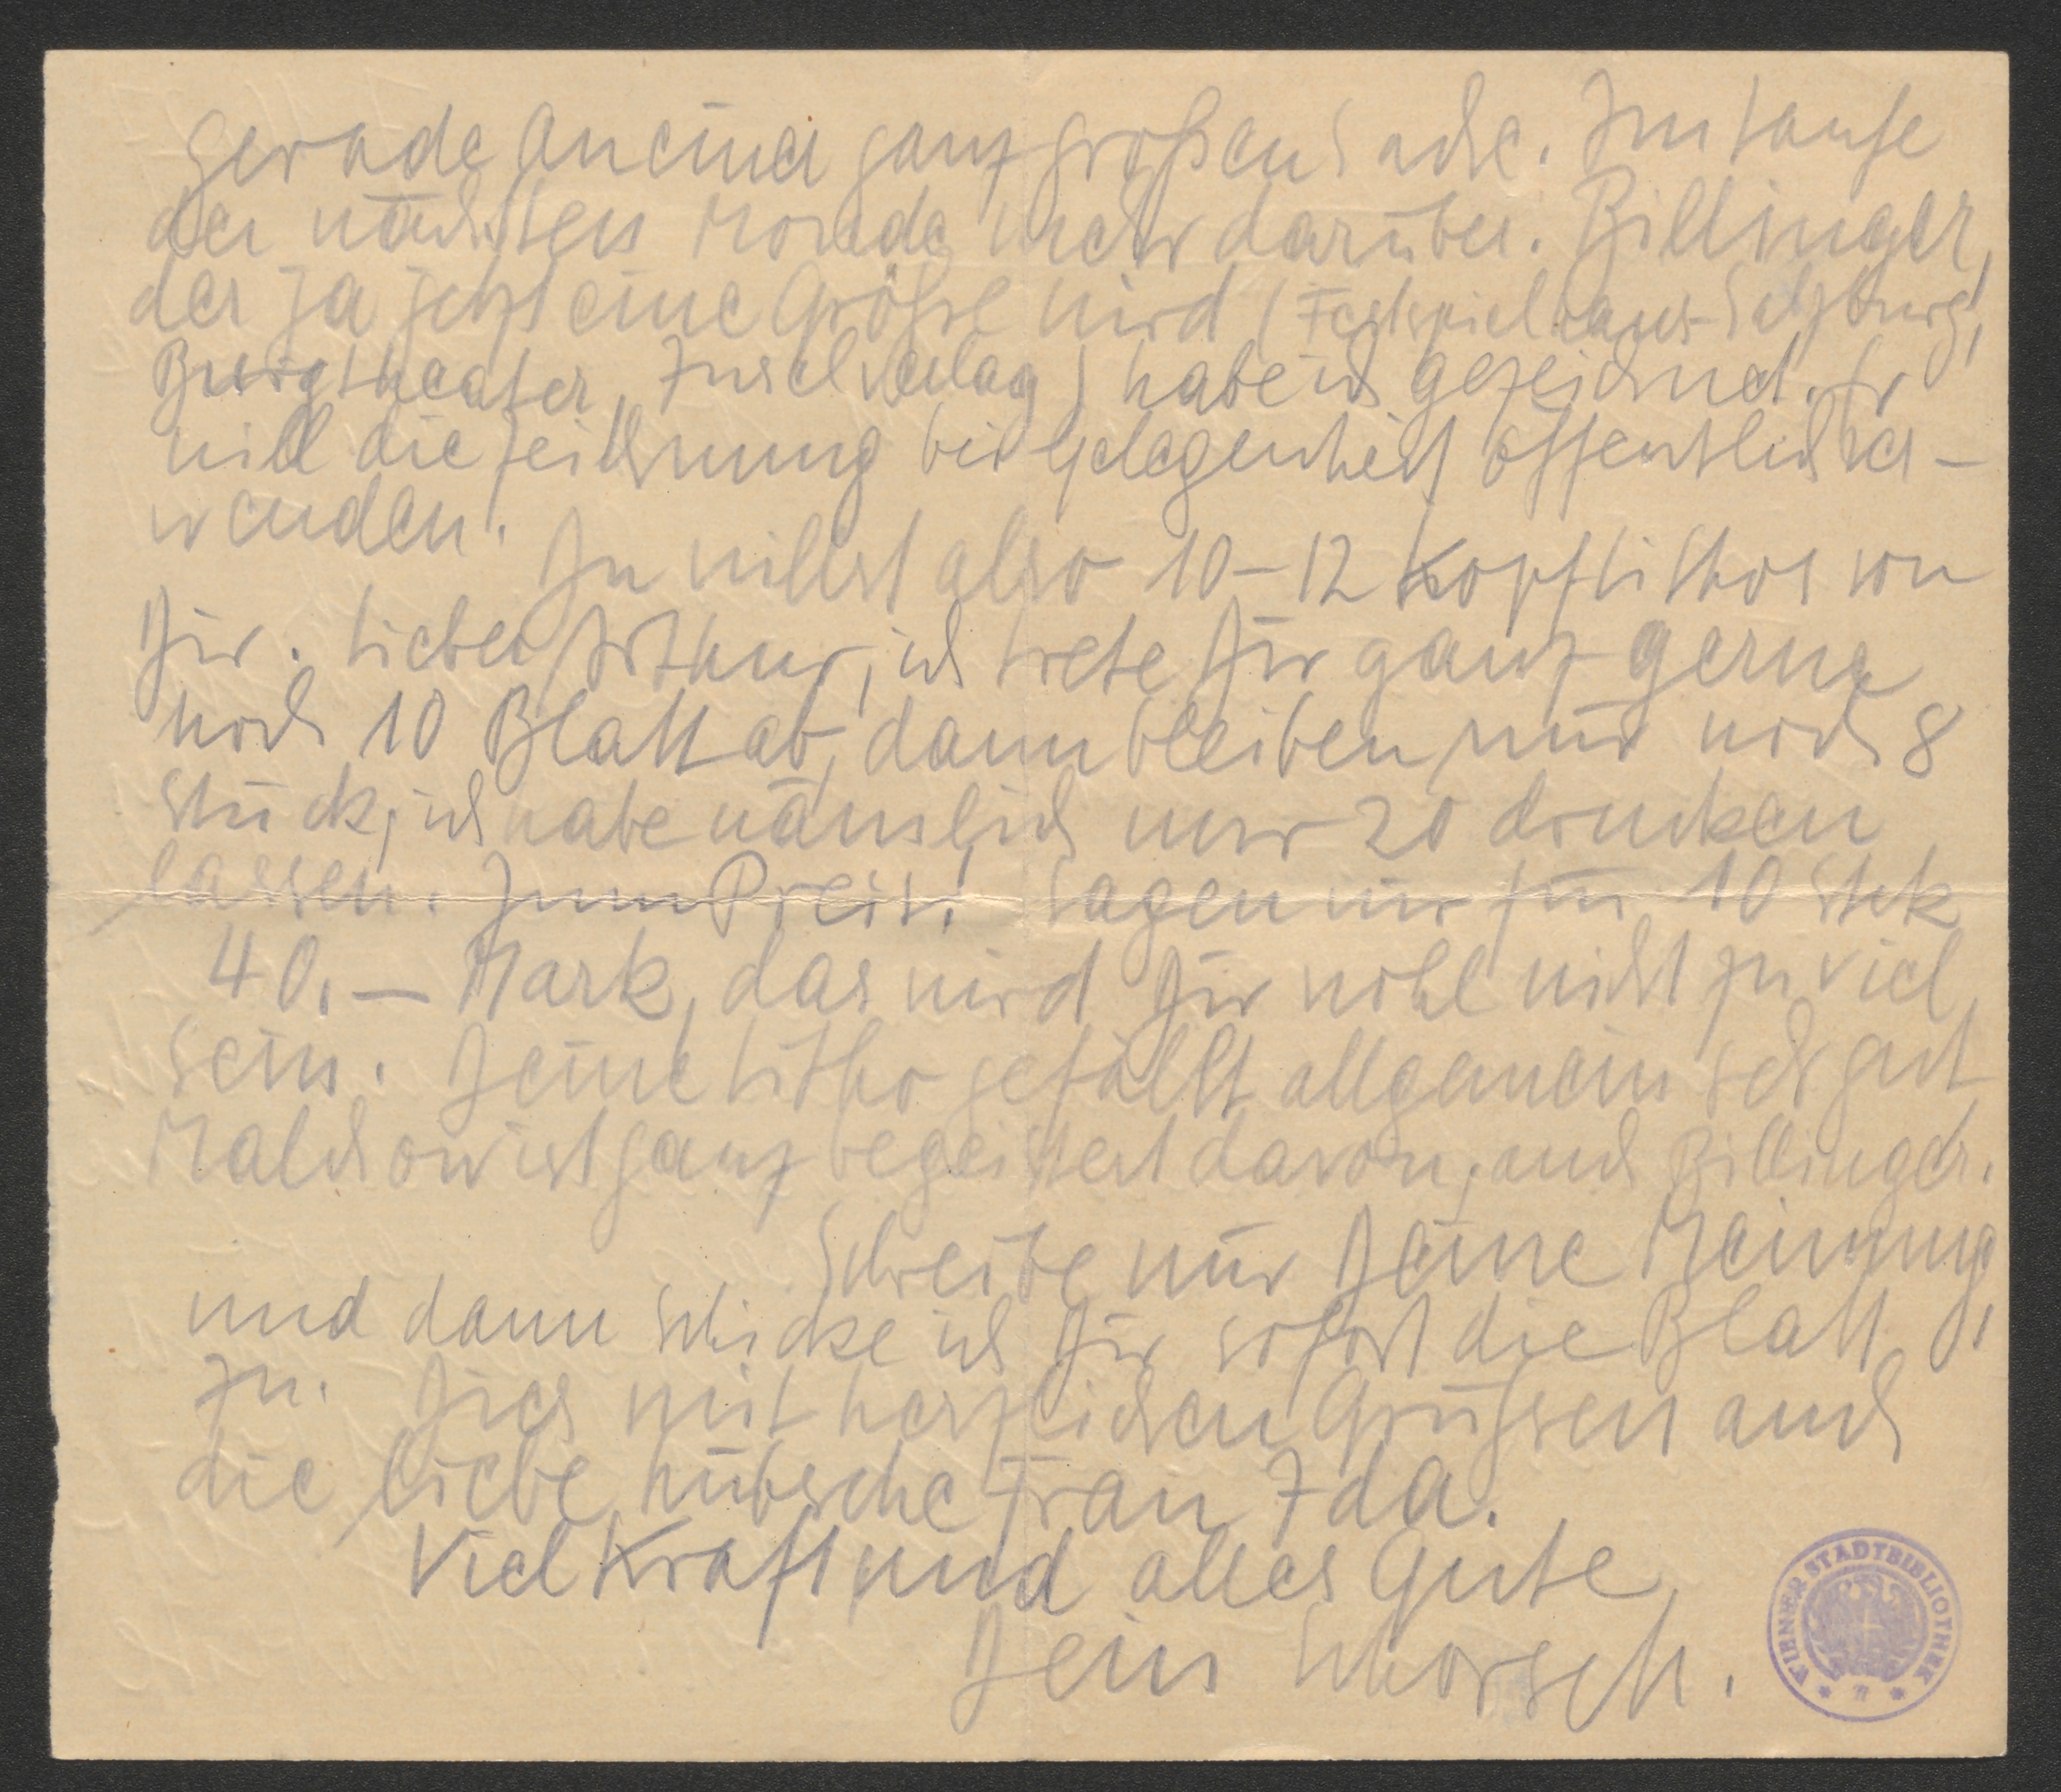 gerade an einer ganz großen Sache. Im Laufe
der nächsten Monde mehr darüber. Billinger,
der ja jetzt eine Größe wird (Festspielhaus-Salzburg,
Burgtheater, Inselverlag) habe ich gezeichnet. Er
will die Zeichnung bei Gelegenheit öffentlich ver-
wenden.
Du willst also 10–12 Kopflithos von
Dir. Lieber Arthur, ich trete Dir ganz gerne
noch 10 Blatt ab, dann bleiben mir noch 8
Stück, ich habe nämlich nur 20 drucken
lassen. Zum Preis! Sagen wir für 10 Stck
40.– Mark, das wird Dir wohl nicht zu viel
sein. Deine Litho gefällt allgemein sehr gut
Malchow ist ganz begeistert davon, auch Billinger.
Schreibe mir Deine Meinung,
und dann schicke ich Dir sofort die Blatt
zu. Dies mit herzlichen Grüßen auch
die liebe hübsche Frau Ida.
Viel Kraft und alles Gute
Dein Schorsch.
WIENER STADTBIBLIOTHEK